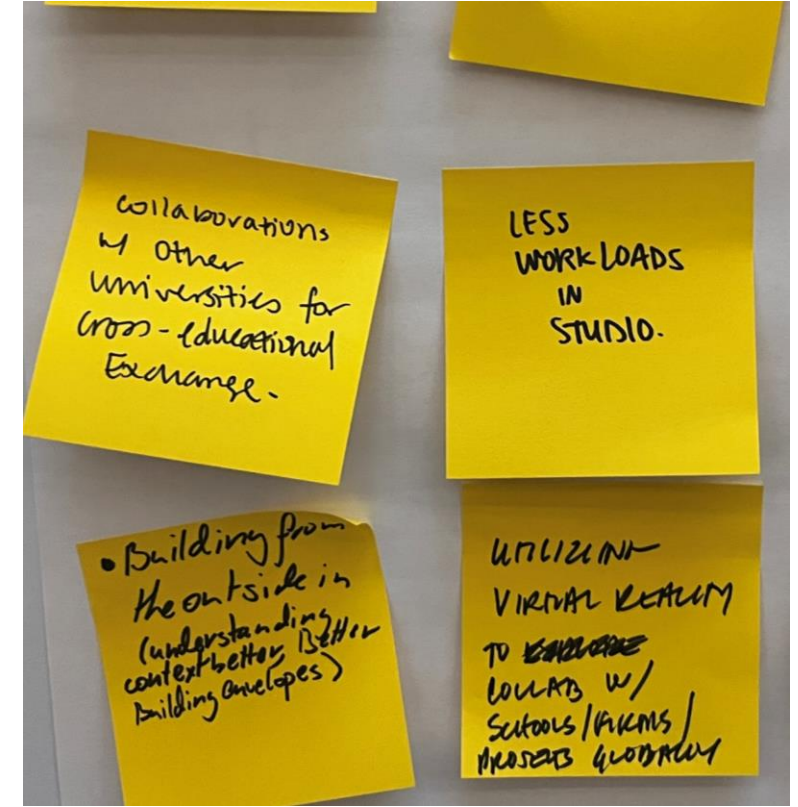 collaborations
w/ other
universities for
cross-educational
Exchange.
LESS
WORKLOADS
IN
STUDIO.
• Building from
the outside in
(understanding
context better, Better
Building envelopes)
UTILIZING
VIRTUAL REALITY
TO
COLLAB W/
SCHOOLS/FIRMS/
PROJECTS GLOBALLY